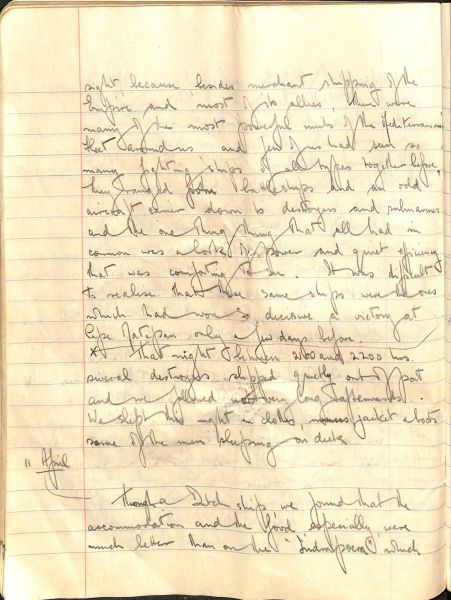 sight because besides merchant shipping of the
Empire and most of its allies, there were
many of the most powerful units of the Mediterranean
fleet around us and few of us had seen so
many fighting ships of all types together before,
they ranged from battleships and an odd
aircraft carrier down to destroyers and submarines
and the one thing that all had in
common was a look of power and quiet efficiency
that was comforting to see. It was difficult
to realise that these same ships were the ones
which had won so decisive a victory at
Cape Matapan only a few days before.
* That night between 2100 and 2200 hrs.
several destroyers slipped quietly out of port
and we followed not very long afterwards.
We slept this night in clothes, minus jacket & boots
some of the men sleeping on deck.
11 April
Though a Dutch ship we found that the
accommodation and the food especially were
much better than on the "Indrapoera" which